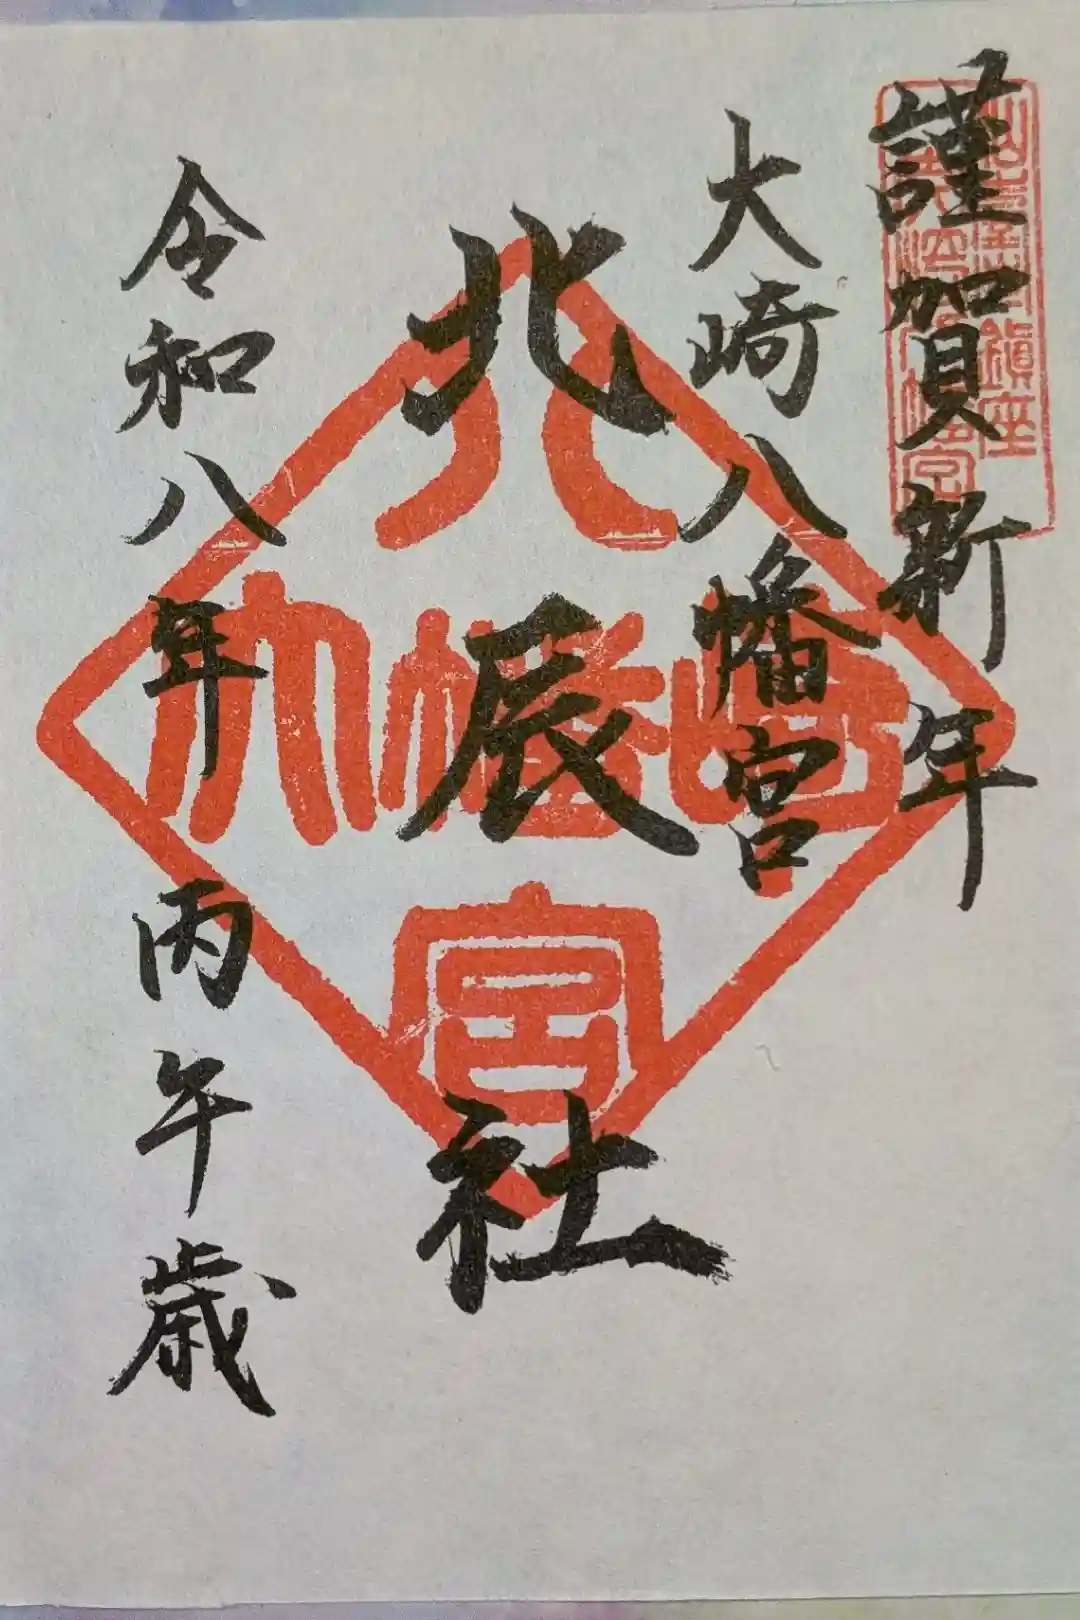 謹賀新年
大崎八幡宮
北辰社
令和八年 丙午歳
八
大
幡
崎
宮